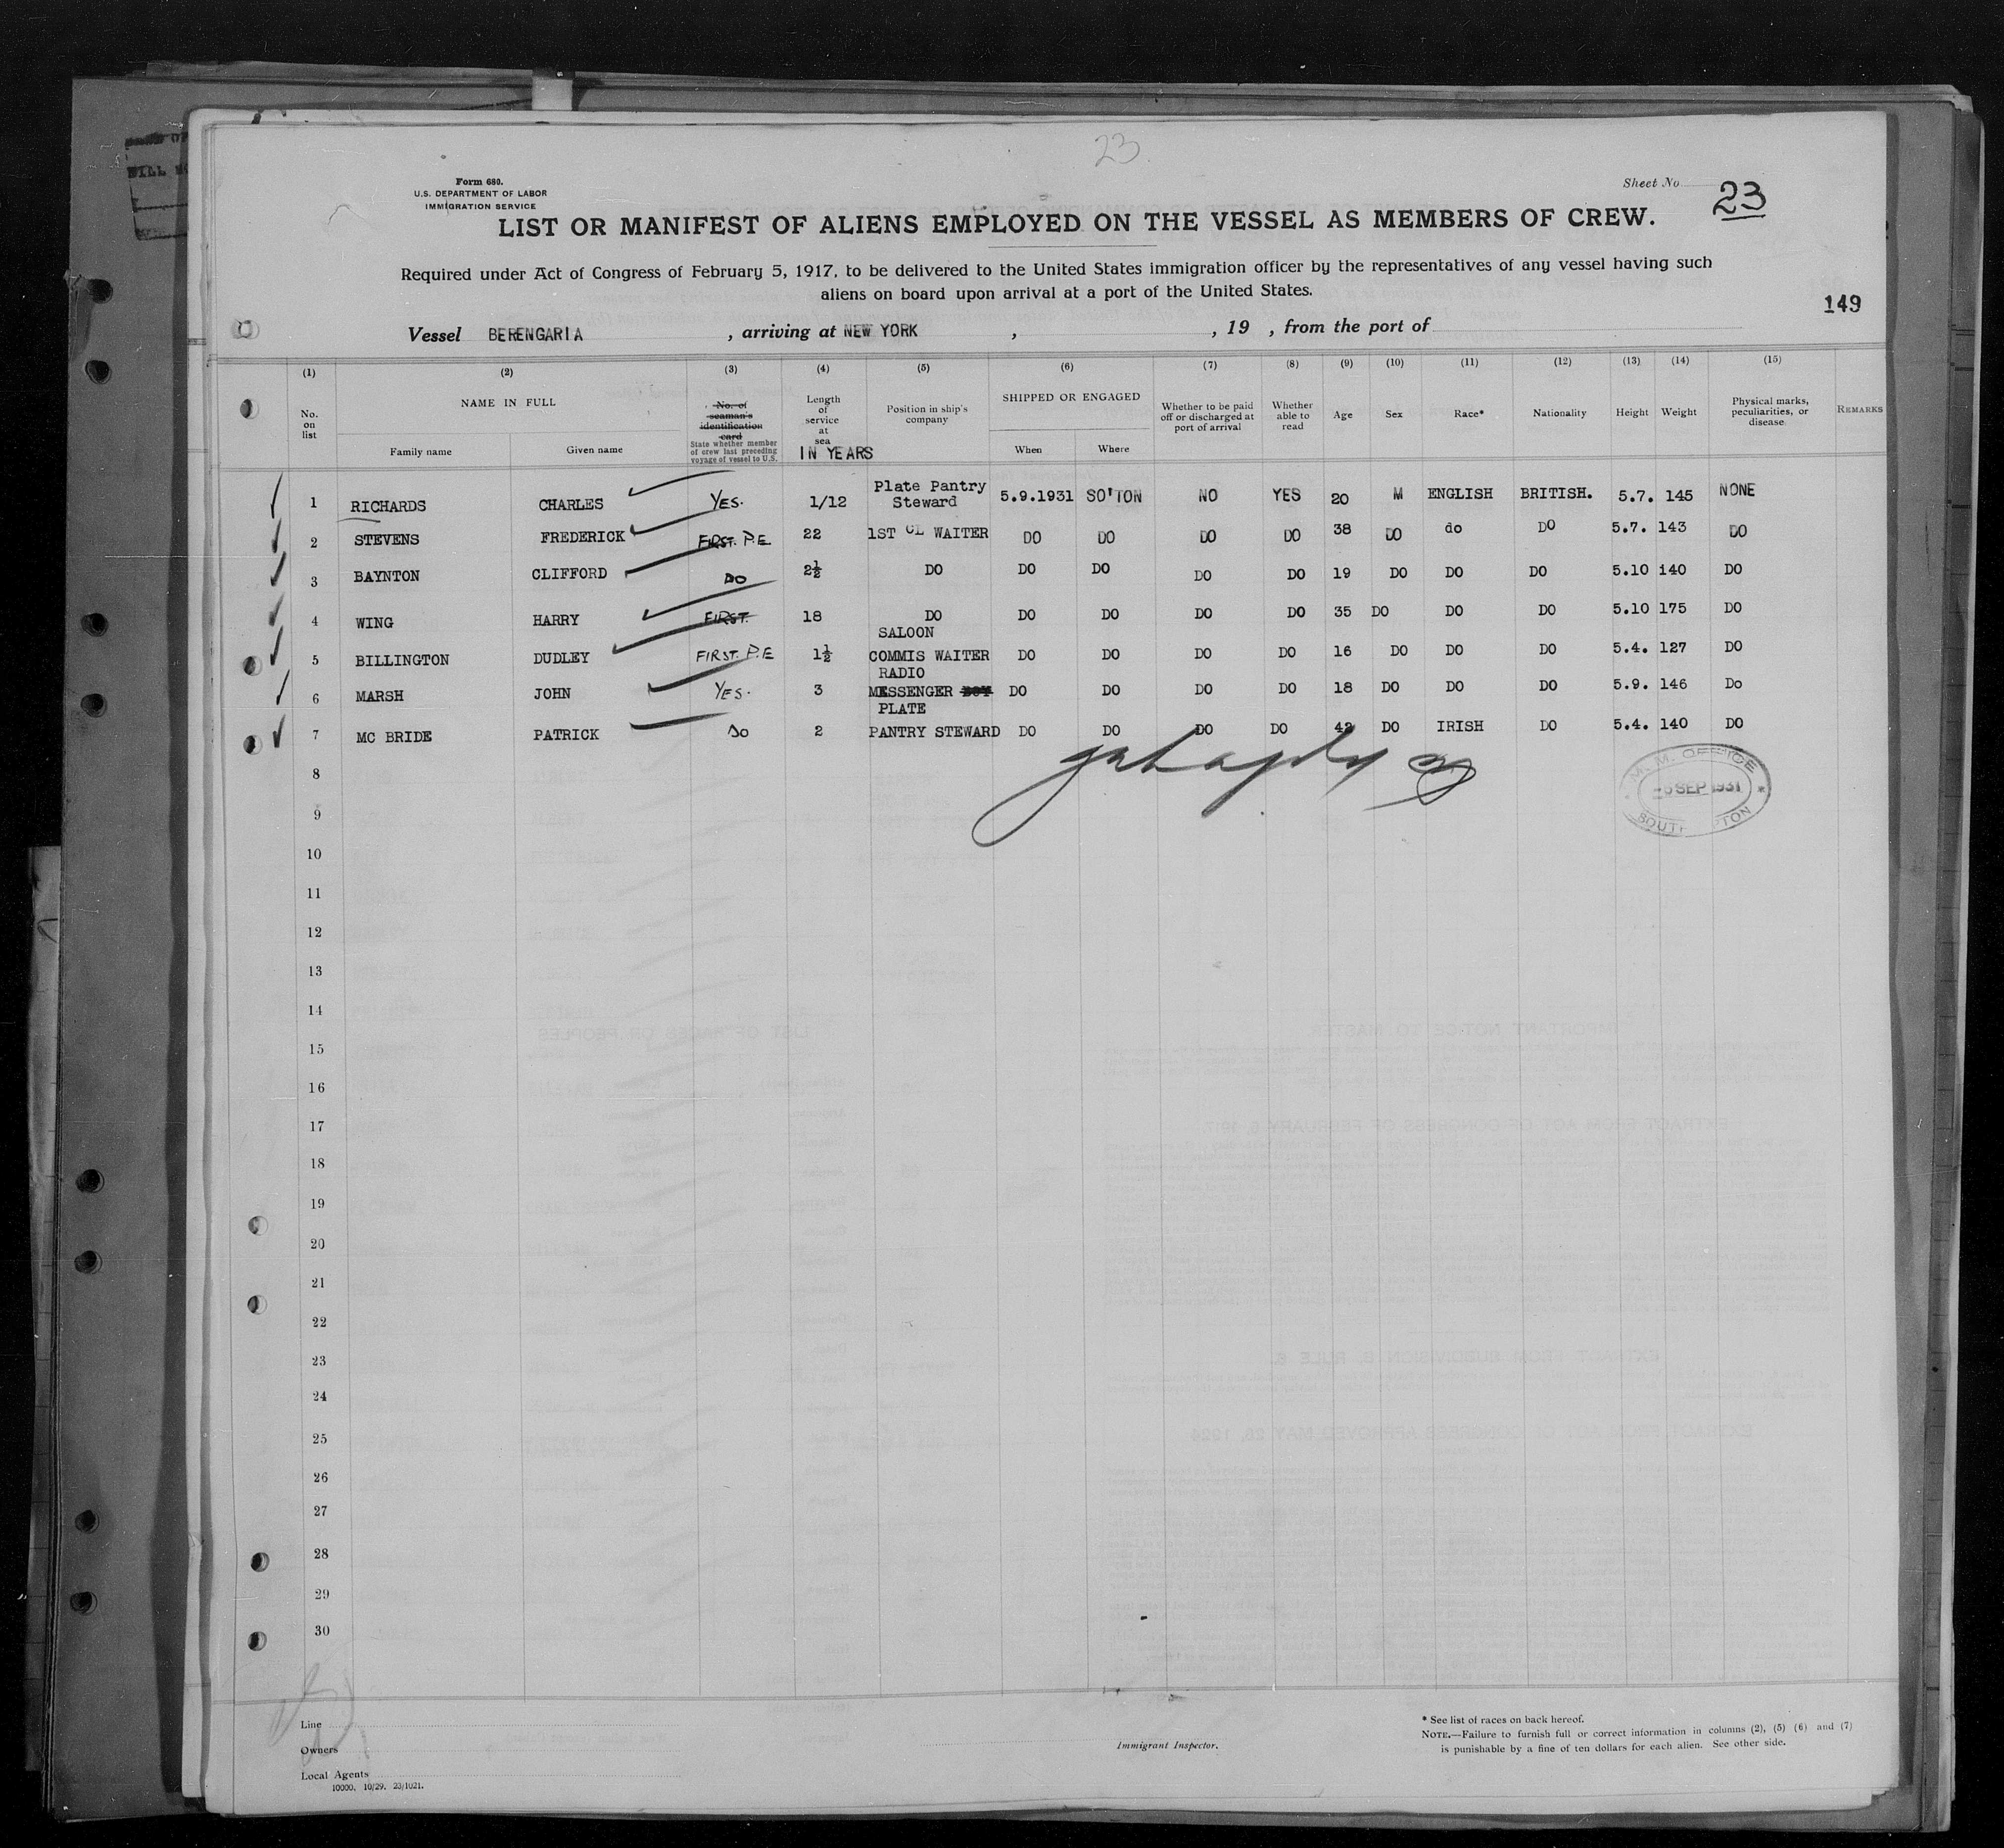 23
Form 680.
U.S. DEPARTMENT OF LABOR
IMMIGRATION SERVICE
Sheet No. 23
LIST OR MANIFEST OF ALIENS EMPLOYED ON THE VESSEL AS MEMBERS OF CREW.
Required under Act of Congress of February 5, 1917, to be delivered to the United States immigration officer by the representatives of any vessel having such
aliens on board upon arrival at a port of the United States.
149
Vessel BERENGARIA , arriving at NEW YORK , , 19 , from the port of
(1) (2) (3) (4) (5) (6) (7) (8) (9) (10) (11) (12) (13) (14) (15)
No. on list NAME IN FULL Family name Given name No. of seaman's identification card State whether member of crew last preceding voyage of vessel to U.S. Length of service at sea IN YEARS Position in ship's company SHIPPED OR ENGAGED When Where Whether to be paid off or discharged at port of arrival Whether able to read Age Sex Race* Nationality Height Weight Physical marks, peculiarities, or disease REMARKS
1 RICHARDS CHARLES YES. 1/12 Plate Pantry Steward 5.9.1931 SO'TON NO YES 20 M ENGLISH BRITISH. 5.7. 145 NONE
2 STEVENS FREDERICK FIRST. P.E 22 1ST CL WAITER DO DO DO DO 38 DO do DO 5.7. 143 DO
3 BAYNTON CLIFFORD DO 2½ DO DO DO DO DO 19 DO DO DO 5.10 140 DO
4 WING HARRY FIRST. 18 DO DO DO DO DO 35 DO DO DO 5.10 175 DO
5 BILLINGTON DUDLEY FIRST. P.E 1½ SALOON COMMIS WAITER DO DO DO DO 16 DO DO DO 5.4. 127 DO
6 MARSH JOHN YES. 3 RADIO MESSENGER BOY DO DO DO DO 18 DO DO DO 5.9. 146 Do
7 MC BRIDE PATRICK DO 2 PLATE PANTRY STEWARD DO DO DO DO 42 DO IRISH DO 5.4. 140 DO
M.M. OFFICE
SEP 1931
8
9
10
11
12
13
14
15
16
17
18
19
20
21
22
23
24
25
26
27
28
29
30
Line
Owners
Local Agents
10000. 10/29. 23/1021.
Immigrant Inspector.
* See list of races on back hereof.
NOTE.—Failure to furnish full or correct information in columns (2), (5) (6) and (7)
is punishable by a fine of ten dollars for each alien. See other side.